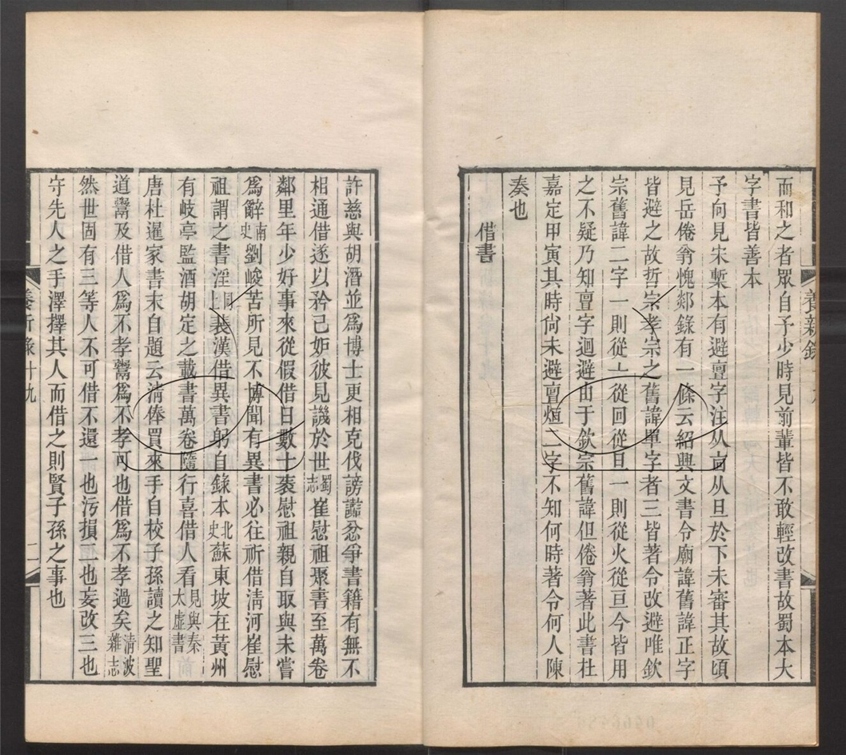 而和之者眾自予少時見前輩皆不敢輕改書故蜀本大
字書皆善本
予向見宋槧本有避亶字注从㐭从旦於下未審其故頃
見岳倦翁愧郯錄有一條云紹興文書令廟諱舊諱正字
皆避之故哲宗孝宗之舊諱單字者三皆著令改避唯欽
宗舊諱二字一則從亠從回從旦一則從火從亘今皆用
之不疑乃知亶字迴避由于欽宗舊諱但倦翁著此書在
嘉定甲寅其時尙未避亶烜二字不知何時著令何人陳
奏也
借書
許慈與胡潛並爲博士更相克伐謗讟忿爭書籍有無不
相通借遂以矜己妒彼見譏於世蜀志崔慰祖聚書至萬卷
鄰里年少好事來從假借日數十袠慰祖親自取與未嘗
爲辭南史劉峻苦所見不博聞有異書必往祈借淸河崔慰
祖謂之書淫同上裴漢借異書躬自錄本北史蘇東坡在黃州
有岐亭監酒胡定之載書萬卷隨行喜借人看見與秦太虛書
唐杜暹家書末自題云淸俸買來手自校子孫讀之知聖
道鬻及借人爲不孝鬻爲不孝可也借爲不孝過矣淸波雜志
然世固有三等人不可借不還一也污損二也妄改三也
守先人之手澤擇其人而借之則賢子孫之事也
養新錄
養新錄十九
二